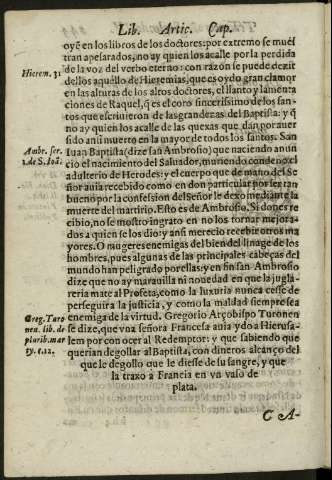 Lib. Artic. Cap.
oyẽ en los libros de los doctores: por extremo se mueſ
tran apesarados, no ay quien los acalle por la perdida
de la voz del verbo eterno: con razon se puede dezir
Hierem. 31
dellos aquello de Hieremias, que es oydo gran clamor
en las alturas de los altos doctores, el llanto y lamenta
ciones de Raquel, q̃ es el coro sincerissimo de los san-
tos que escriuieron de las grandezas del Baptista: y q̃
no ay quien los acalle de las quexas que dan, por auer
sido aun muerto en la mayor de todos los santos. San
Ambr. ser.
Iuan Baptista (dize san Ambrosio) que naciendo anun
2. de S. Ioã.
cio el nacimiento del Saluador, muriendo condeno el
adulterio de Herodes: y el cuerpo que de mano del Se
ñor auia recebido como en don particular por ser tan
bueno por la confession del Señor le dexo mediante la
muerte del martirio. Esto es de Ambrosio, Si dones re
cibio, no se mostro ingrato en no los tornar mejora-
dos a quien se los dio y ansi merecio recebir otros ma
yores. O mugeres enemigas del bien del linage de los
hombres, pues algunas de las principales cabeças del
mundo han peligrado por ellas: y en fin san Ambrosio
dize que no ay marauilla ni nouedad en que la jugla-
reria mate al Profeta, como la luxuria nunca cesse de
perseguir a la justicia, y como la maldad siempre sea
Greg. Turo
enemiga de la virtud. Gregorio Arçobispo Turonen
nen. lib. de
se dize, que vna señora Francesa auia ydo a Hierusa-
plurib. mar
lem por conocer al Redemptor: y que sabiendo que
ty. c. 12.
querian degollar al Baptista, con dineros alcanço del
que le degollo que le diesse de su sangre, y que
la traxo a Francia en vn vaso de
plata.
C A-